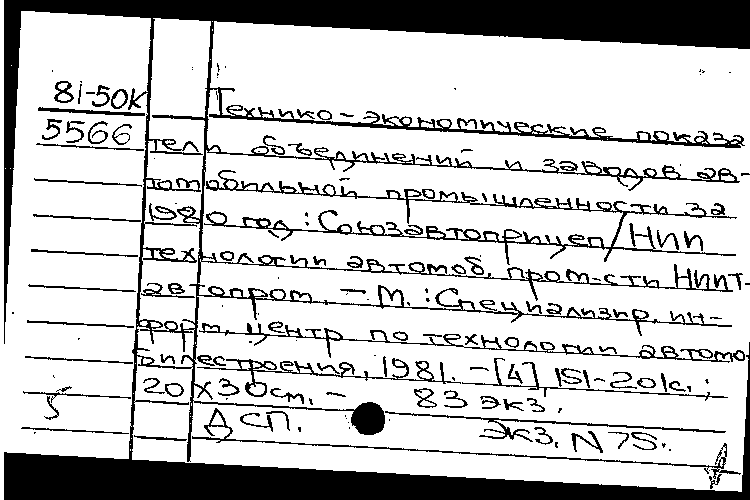 81-50К
Технико-экономические показа
5566
тели объединений и заводов ав-
томобильной промышленности за
1980 год : Союзавтоприцеп/НИИ
технологии автомоб. пром-сти НИИТ-
автопром. – М. : Специализир. ин-
форм. центр по технологии автомо
билестроения, 1981. – [4], 151-201с. ;
20 х 30см. – 83 экз.
5
ДСП. Экз. N 75.